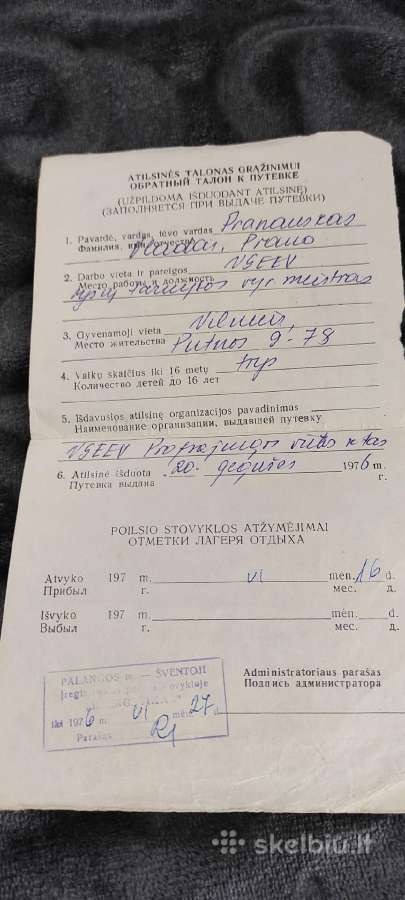 ATILSINĖS TALONAS GRĄŽINIMUI
ОБРАТНЫЙ ТАЛОН К ПУТЕВКЕ
(UŽPILDOMA IŠDUODANT ATILSINĘ)
(ЗАПОЛНЯЕТСЯ ПРИ ВЫДАЧЕ ПУТЕВКИ)
1. Pavardė, vardas, tėvo vardas Pranauskas
Фамилия, имя, отчество Vladas, Prano
2. Darbo vieta ir pareigos VGEEV
Место работы и должность
vyr. meistras
3. Gyvenamoji vieta Vilnius,
Место жительства Putnos 9-78
4. Vaikų skaičius iki 16 metų tryp
Количество детей до 16 лет
5. Išdavusios atilsinę organizacijos pavadinimas
Наименование организации, выдавшей путевку
VGEEV Profsąjungos vietos k-tas
6. Atilsinė išduota 20. gegužės 1976 m.
Путевка выдана г.
POILSIO STOVYKLOS ATŽYMĖJIMAI
ОТМЕТКИ ЛАГЕРЯ ОТДЫХА
Atvyko 197 m. VI mėn. 16 d.
Прибыл г. мес. д.
Išvyko 197 m. mėn. d.
Выбыл г. мес. д.
PALANGOS m. — ŠVENTOJI
Administratoriaus parašas
Подпись администратора
iki 1976 m. VI mėn. 27 d.
Parašas
skelbiu.lt